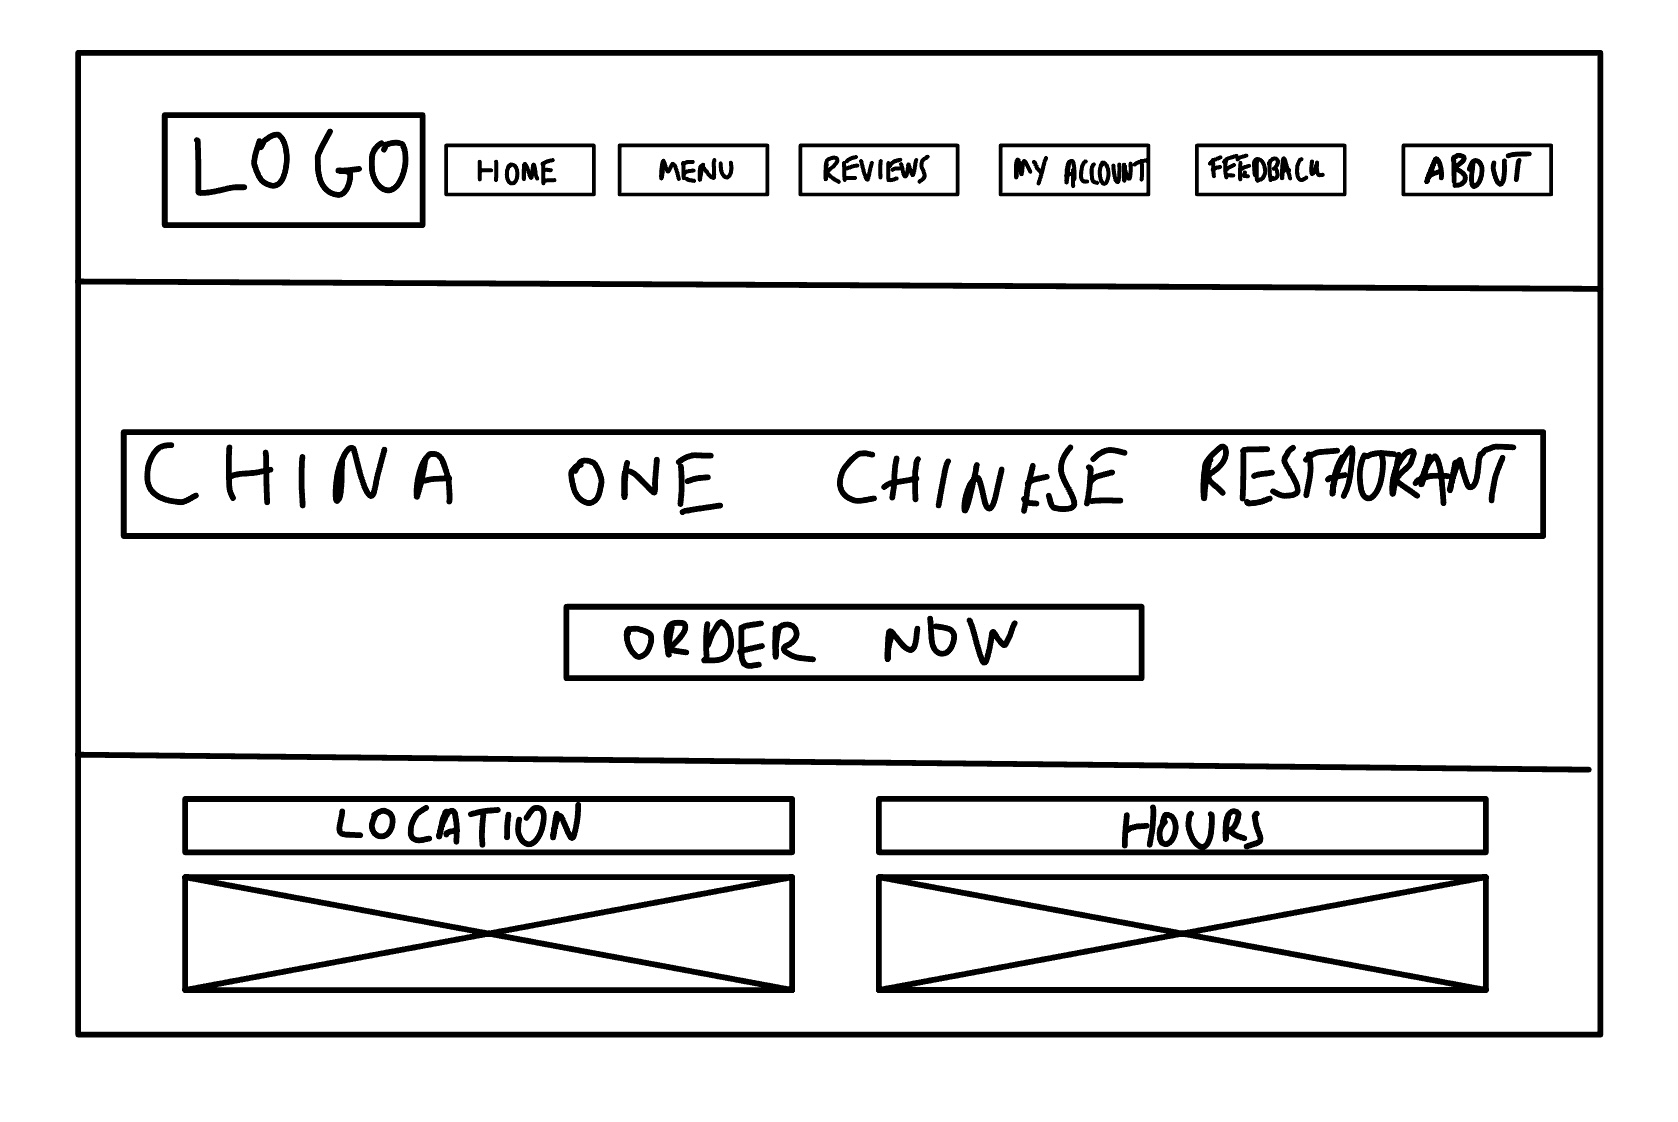 LOGO HOME MENU REVIEWS MY ACCOUNT FEEDBACK ABOUT
CHINA ONE CHINESE RESTAURANT
ORDER NOW
LOCATION HOURS